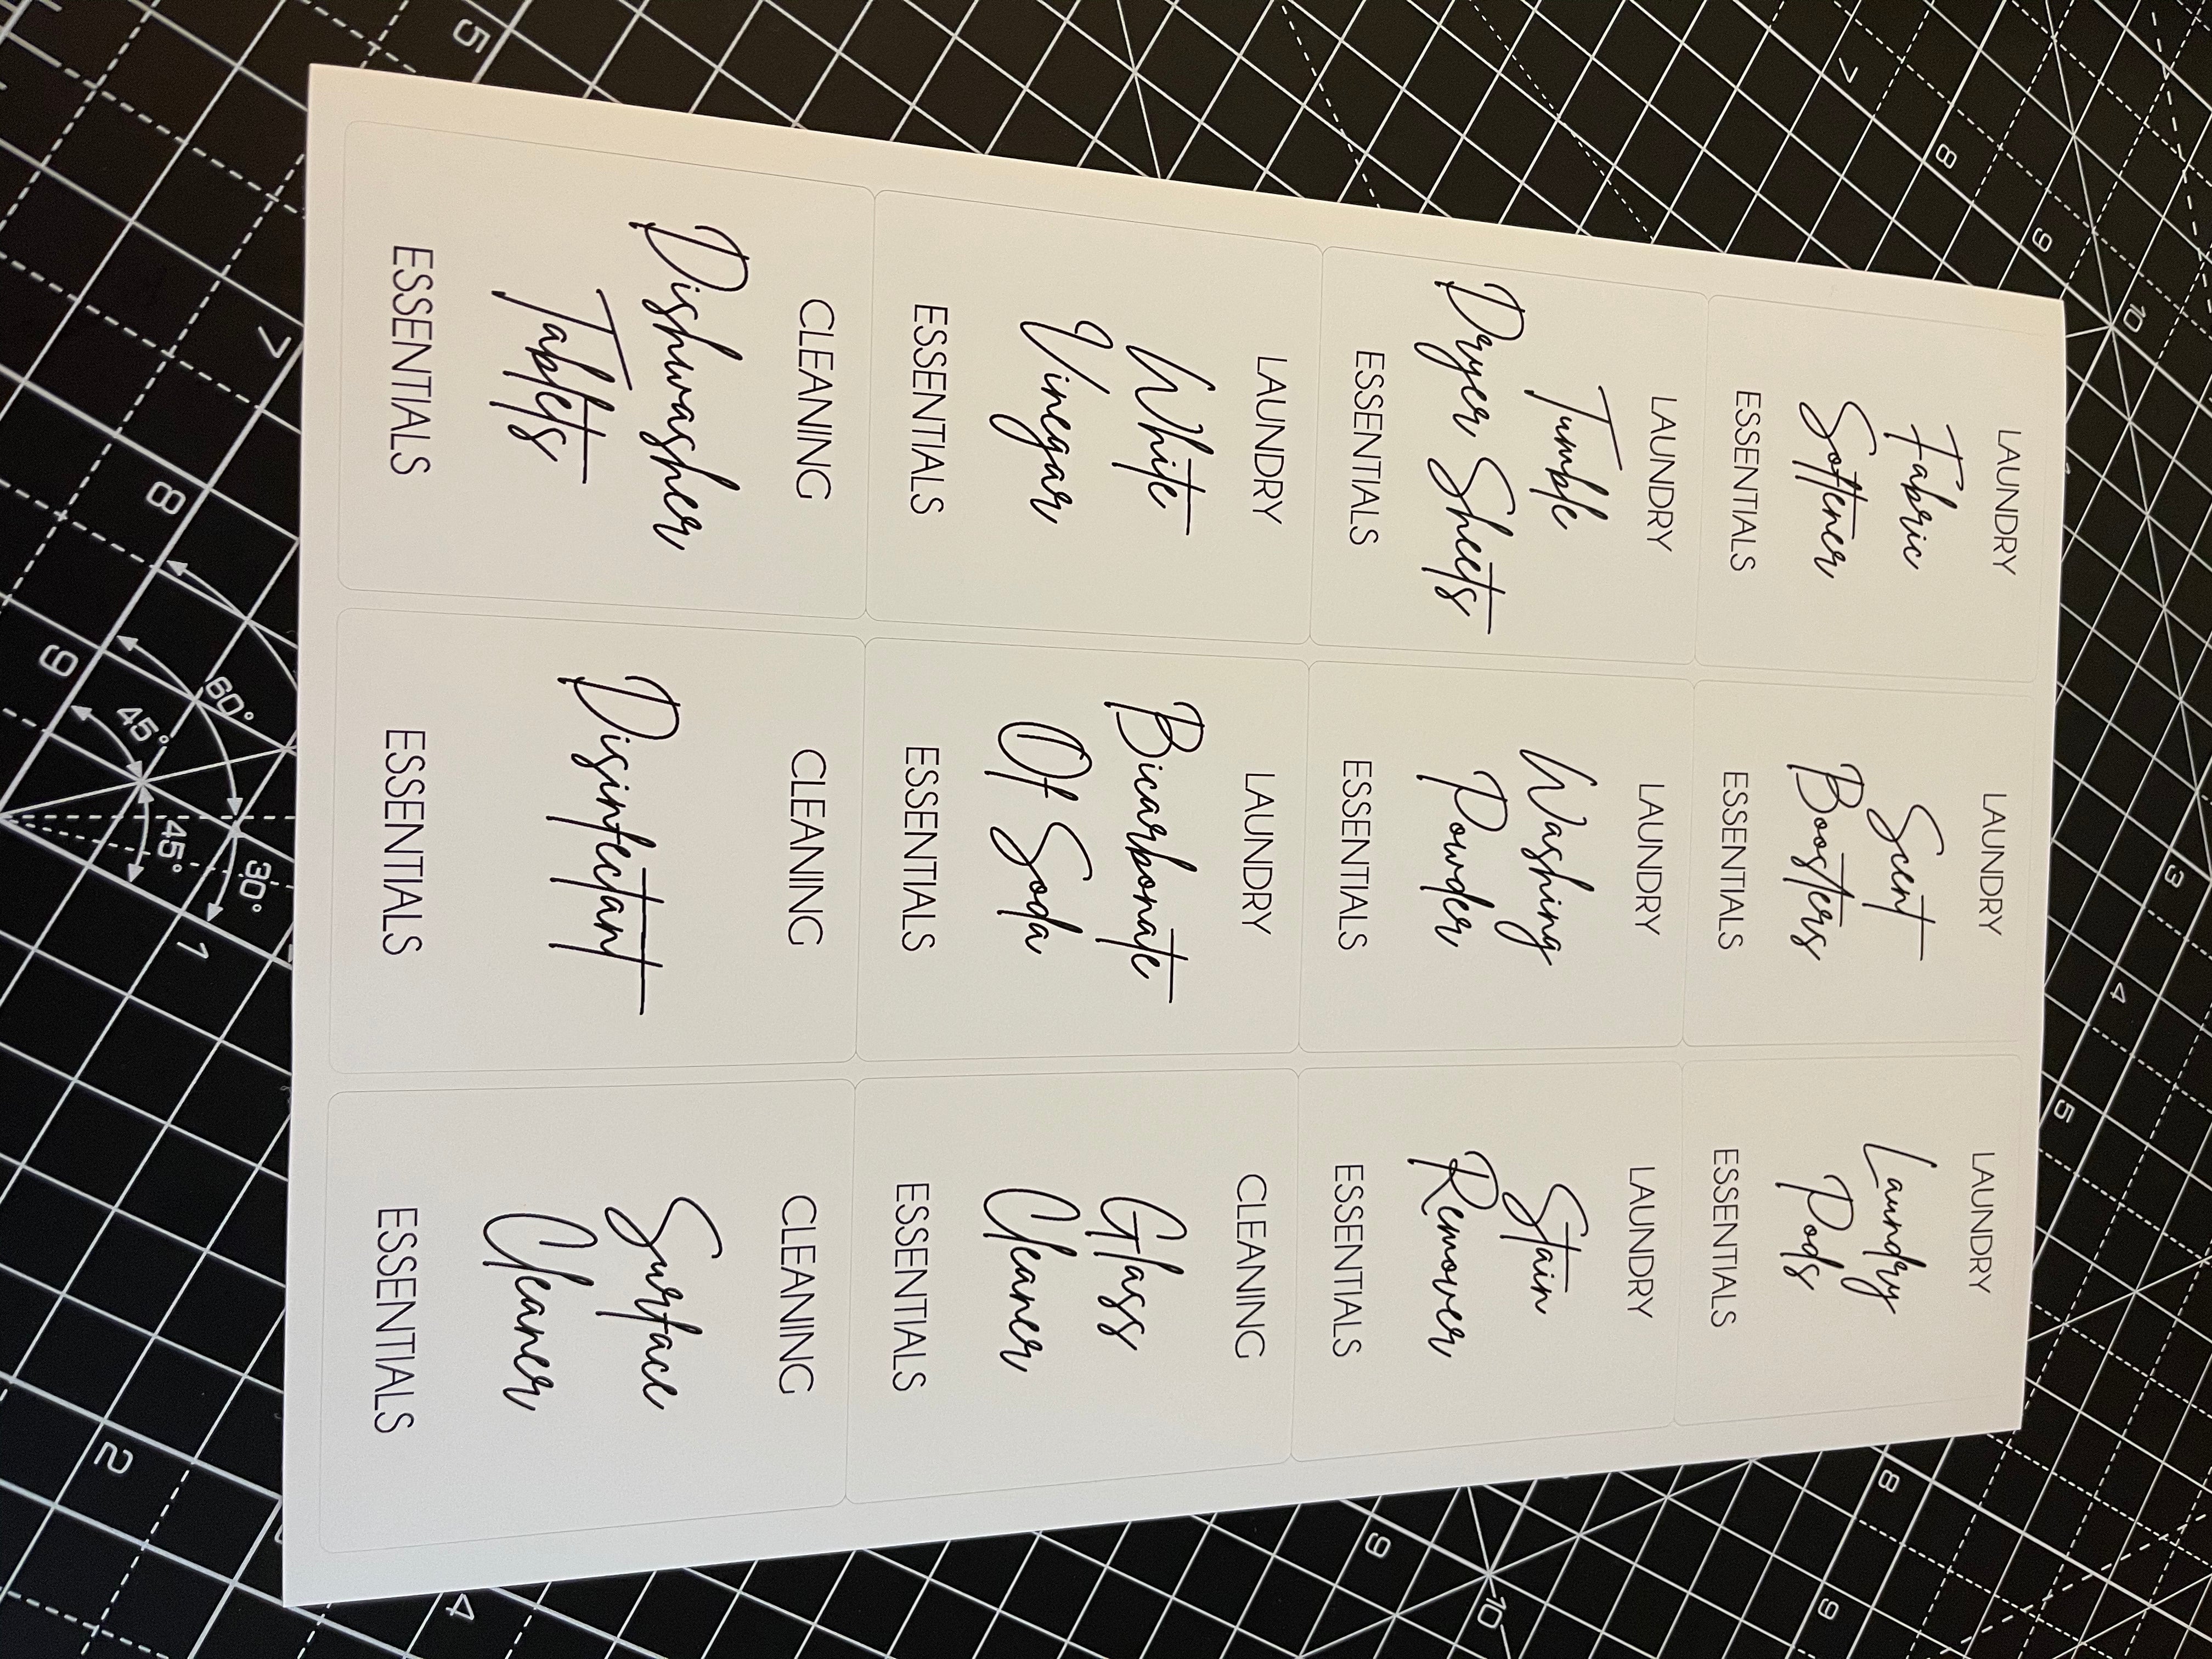 LAUNDRY
Fabric
Softener
ESSENTIALS
LAUNDRY
Scent
Boosters
ESSENTIALS
LAUNDRY
Laundry
Pods
ESSENTIALS
LAUNDRY
Tumble
Dryer Sheets
ESSENTIALS
LAUNDRY
Washing
Powder
ESSENTIALS
LAUNDRY
Stain
Remover
ESSENTIALS
LAUNDRY
White
Vinegar
ESSENTIALS
LAUNDRY
Bicarbonate
Of Soda
ESSENTIALS
CLEANING
Glass
Cleaner
ESSENTIALS
CLEANING
Dishwasher
Tablets
ESSENTIALS
CLEANING
Disinfectant
ESSENTIALS
CLEANING
Surface
Cleaner
ESSENTIALS
7
8
9
10
3
4
5
8
9
9
10
5
7
8
9
60°
45°
45°
30°
1
2
4